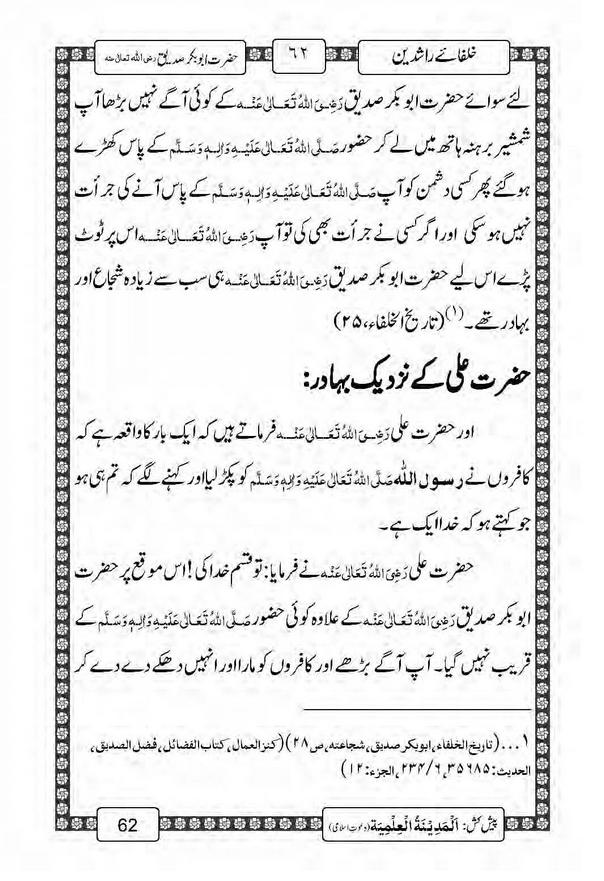 خلفائے راشدین ۶۲ حضرت ابوبکر صدیق رضی اللہ تعالیٰ عنہ
لئے سوائے حضرت ابوبکر صدیق رَضِیَ اللہُ تَعَالٰی عَنْہ کے کوئی آگے نہیں بڑھا آپ
شمشیر برہنہ ہاتھ میں لے کر حضور صَلَّی اللہُ تَعَالٰی عَلَیْہِ وَاٰلِہٖ وَسَلَّم کے پاس کھڑے
ہوگئے پھر کسی دشمن کو آپ صَلَّی اللہُ تَعَالٰی عَلَیْہِ وَاٰلِہٖ وَسَلَّم کے پاس آنے کی جرأت
نہیں ہوسکی اور اگر کسی نے جرأت بھی کی تو آپ رَضِیَ اللہُ تَعَالٰی عَنْہ اس پر ٹوٹ
پڑے اس لیے حضرت ابوبکر صدیق رَضِیَ اللہُ تَعَالٰی عَنْہ ہی سب سے زیادہ شجاع اور
بہادر تھے۔(۱)(تاریخ الخلفاء، ۲۵)
حضرت علی کے نزدیک بہادر:
اور حضرت علی رَضِیَ اللہُ تَعَالٰی عَنْہ فرماتے ہیں کہ ایک بار کا واقعہ ہے کہ
کافروں نے رسول اللہ صَلَّی اللہُ تَعَالٰی عَلَیْہِ وَاٰلِہٖ وَسَلَّم کو پکڑ لیا اور کہنے لگے کہ تم ہی ہو
جو کہتے ہو کہ خدا ایک ہے۔
حضرت علی رَضِیَ اللہُ تَعَالٰی عَنْہ نے فرمایا: تو قسم خدا کی! اس موقع پر حضرت
ابوبکر صدیق رَضِیَ اللہُ تَعَالٰی عَنْہ کے علاوہ کوئی حضور صَلَّی اللہُ تَعَالٰی عَلَیْہِ وَاٰلِہٖ وَسَلَّم کے
قریب نہیں گیا۔ آپ آگے بڑھے اور کافروں کو مارا اور انہیں دھکے دے دے کر
۱...(تاریخ الخلفاء، ابوبکر صدیق، شجاعتہ، ص۲۸)(کنزالعمال، کتاب الفضائل، فضل الصدیق،
الحدیث: ۳۵۶۸۵، ۶/۲۳۴، الجزء: ۱۲)
پیش کش: اَلْمَدِیْنَۃُ الْعِلْمِیَۃ (دعوتِ اسلامی) 62